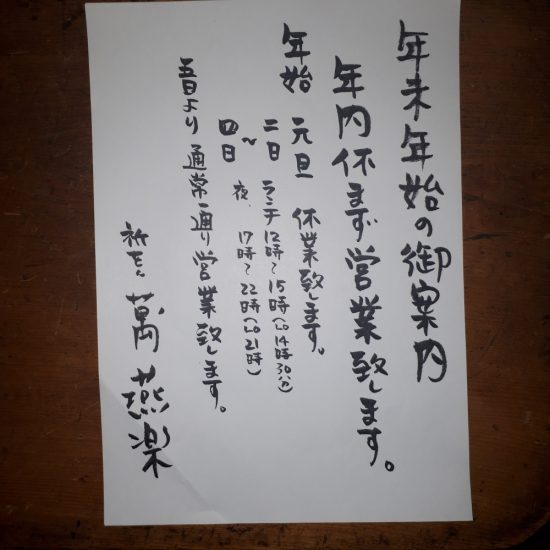 年末年始の御案内
年内休まず営業致します。
年始 元旦 休業致します。
二日 ランチ 12時〜15時(Lo14時30分)
〜
四日 夜、17時〜22時(Lo21時)
五日より 通常通り営業致します。
萬燕楽